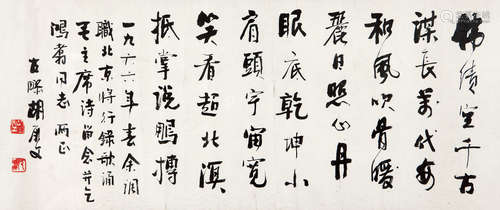 伟绩空千古
谋长万代安
和风吹骨暖
丽日照心丹
眼底乾坤小
肩头宇宙宽
笑看超北溟
抵掌说鹏搏
一九六六年春余调
职北京将行录歌诵
毛主席诗留念并乞
鸿翥同志两正
古滕胡厥文